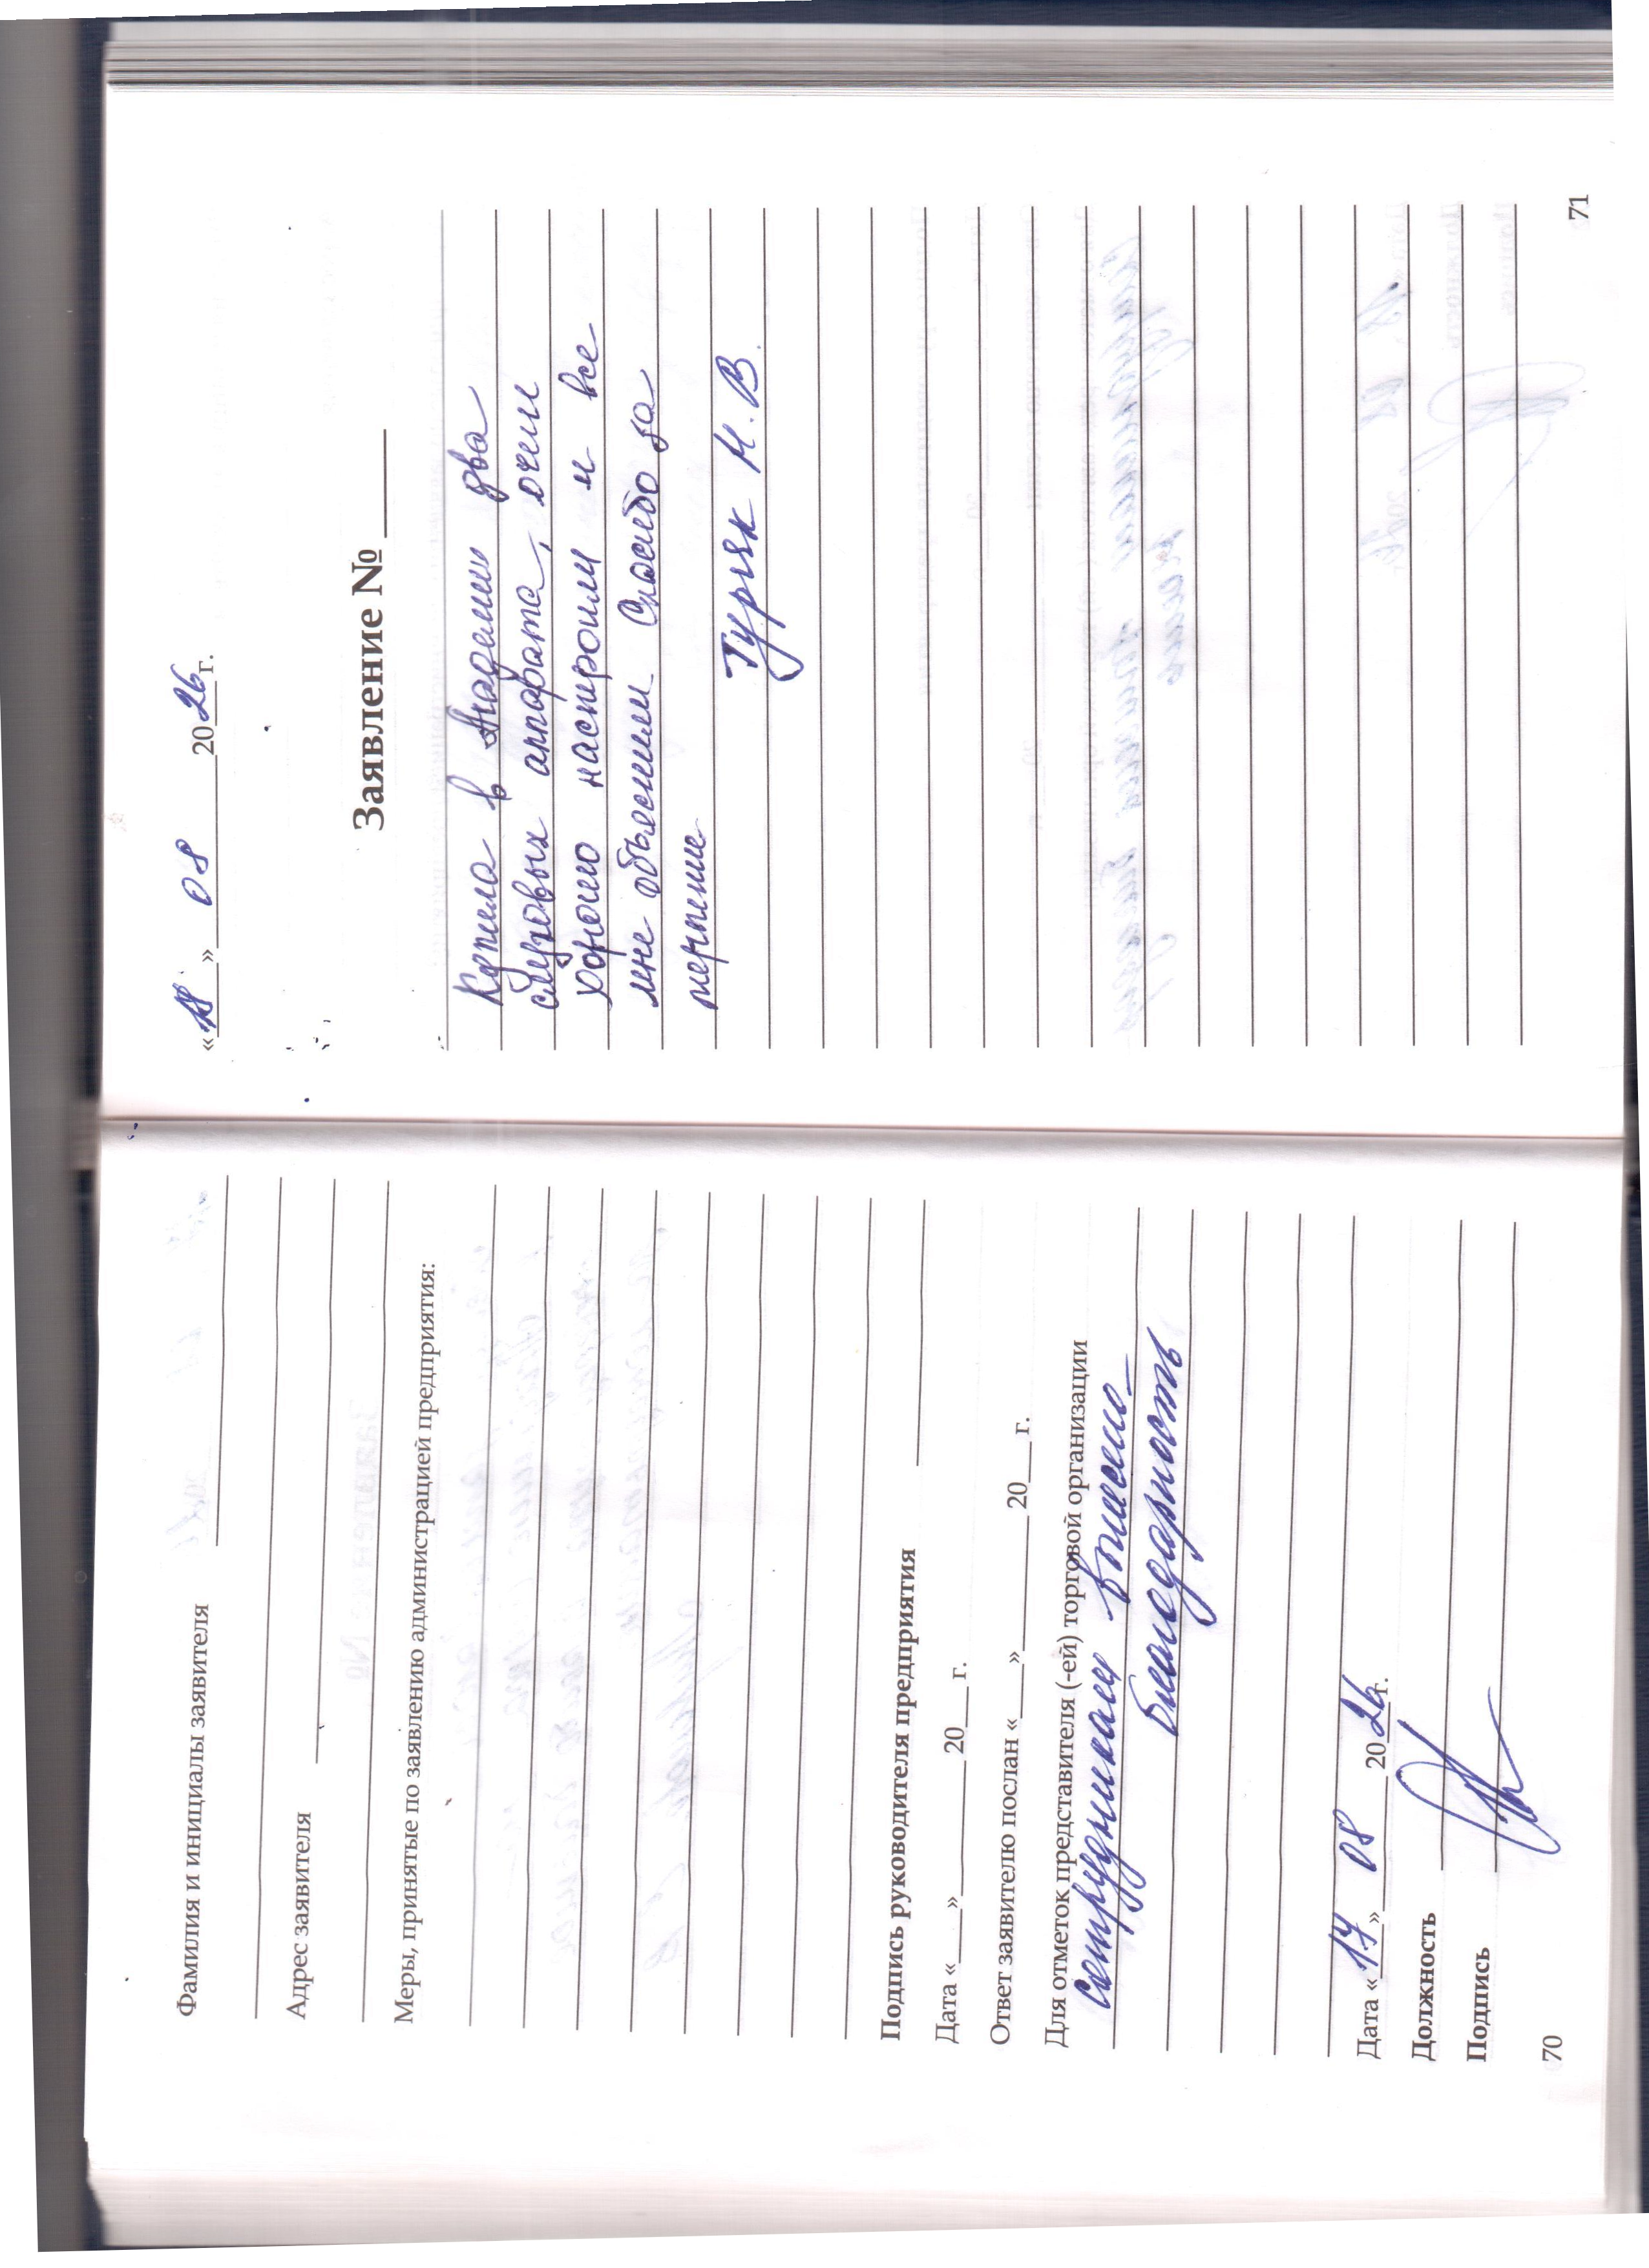 Фамилия и инициалы заявителя
Адрес заявителя
Меры, принятые по заявлению администрацией предприятия:
Подпись руководителя предприятия
Дата «___»________20___г.
Ответ заявителю послан «___»________20___г.
Для отметок представителя (-ей) торговой организации
Сотрудникам вынесено
благодарность
Дата «17» 08 2026г.
Должность
Подпись
70
«18» 08 2026г.
Заявление №
Купила в Академии два
слуховых аппарата, очень
хорошо настроили и все
мне объяснили. Спасибо за
терпение
Туряк М. В.
71